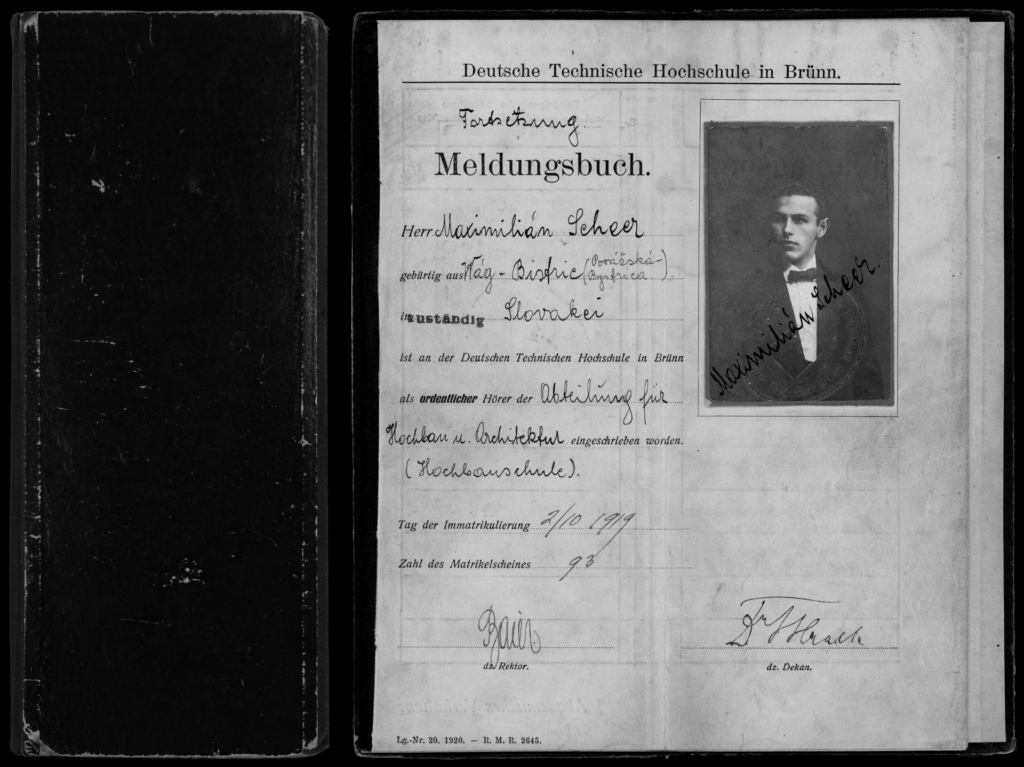 Deutsche Technische Hochschule in Brünn.
Fortsetzung.
Meldungsbuch.
Herr Maximilián Scheer
gebürtig aus Wág-Bistric (Považská-Bystrica).
zuständig Slovakei
ist an der Deutschen Technischen Hochschule in Brünn
als ordentlicher Hörer der Abteilung für
Hochbau u. Architektur eingeschrieben worden.
(Hochbauschule).
Tag der Immatrikulierung 2/10 1919
Zahl des Matrikelscheines 93
dz. Rektor.
dz. Dekan.
Maximilián Scheer.
Lg.-Nr. 20. 1920. — R. M. R. 2645.